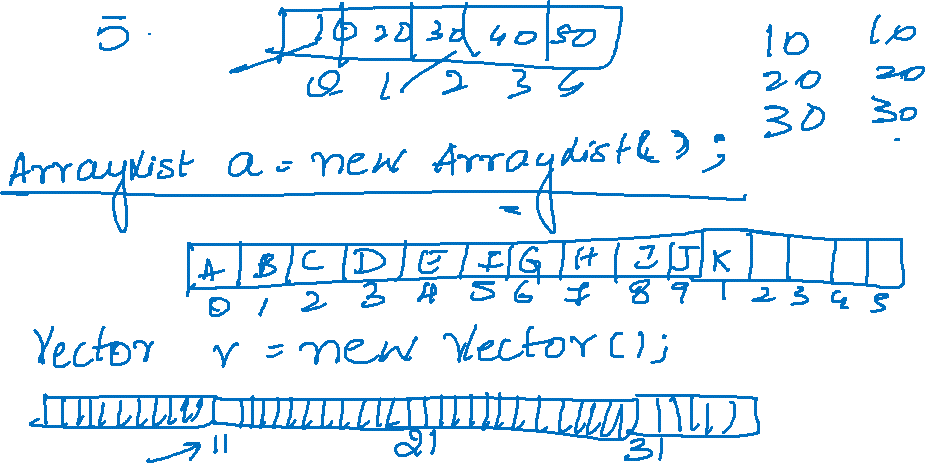 5.
10 20 30 40 50
0 1 2 3 4
10 10
20 20
30 30
ArrayList a = new ArrayList( );
A B C D E F G H I J K
0 1 2 3 4 5 6 7 8 9 1 2 3 4 5
Vector v = new Vector();
11 21 31